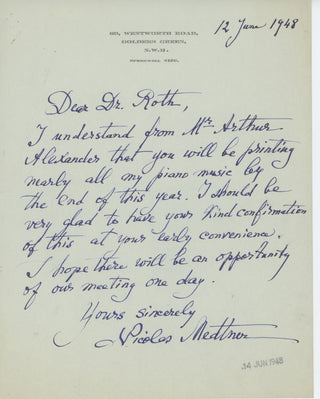 69, WENTWORTH ROAD,
GOLDERS GREEN,
N.W.11.
SPEEDWELL
12 June 1948
Dear Dr. Roth,
I understand from Mr Arthur
Alexander that you will be printing
nearly all my piano music by
the end of this year. I should be
very glad to have your kind confirmation
of this at your early convenience.
I hope there will be an opportunity
of our meeting one day.
Yours sincerely
Nicolas Medtner
14 JUN 1948